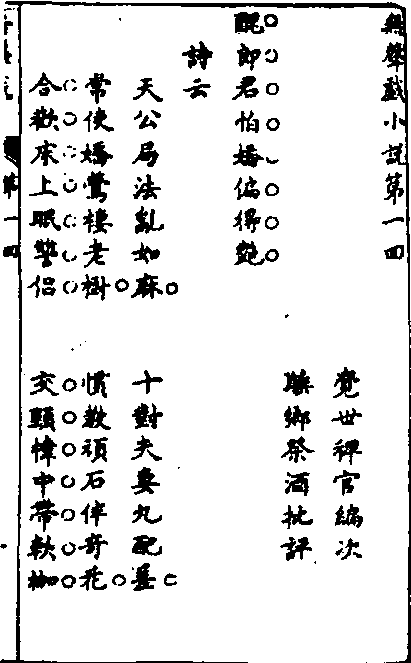 無聲戲小說第一回
覺世稗官編次
睡鄉祭酒批評
醜郎君怕嬌偏得艶
詩云
天公局法亂如麻 十對夫妻九配差
常使嬌鶯棲老樹 慣教頑石伴奇花
合歡床上眠讐侶 交頸幃中帶軟枷
第一回